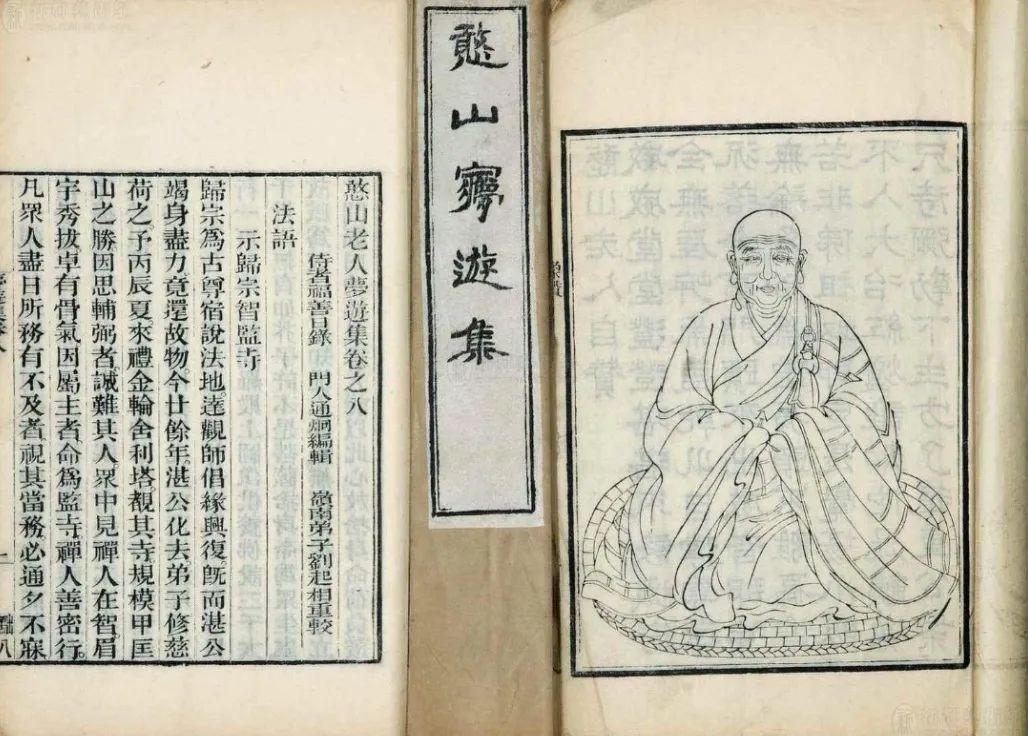 憨山㝱遊集
憨山老人夢遊集卷之八
侍者福善日錄 門人通炯編輯 嶺南弟子劉起相重較
法語
示歸宗智監寺
歸宗爲古尊宿說法地。達觀師倡緣興復。旣而湛公
竭身盡力。竟還故物。今廿餘年。湛公化去。弟子修慈
荷之。予丙辰夏。來禮金輪舍利塔。覩其寺。規模甲匡
山之勝。因思輔弼者。誠難其人。眾中見禪人在智。眉
宇秀拔。卓有骨氣。因屬主者。命爲監寺。禪人善密行。
凡眾人盡日所務。有不及者。視其當務。必通夕不寐